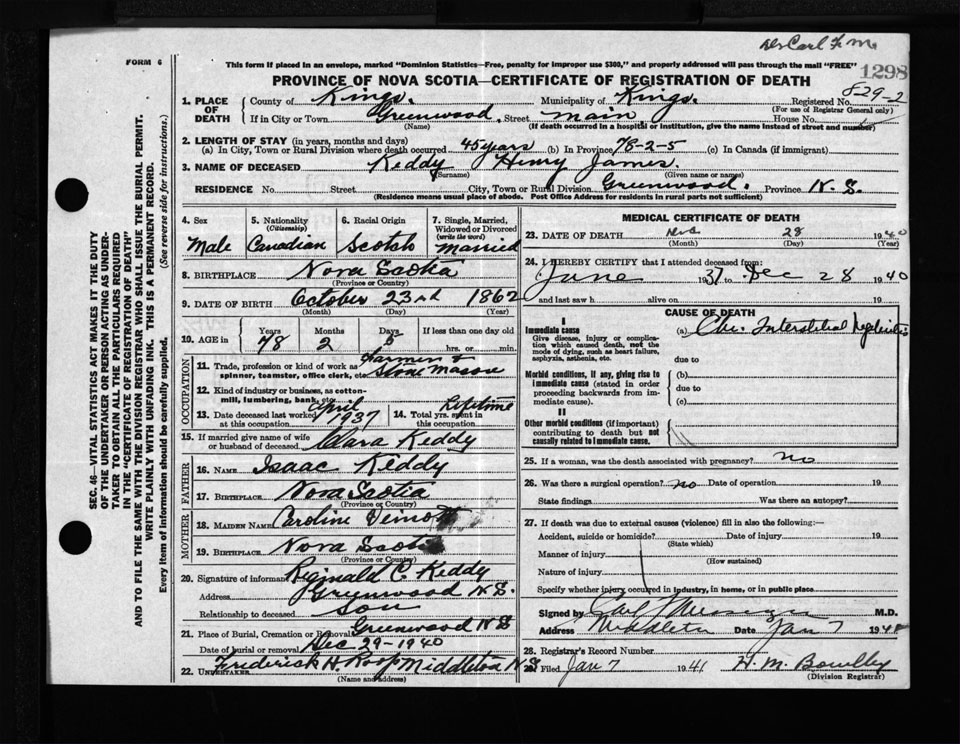 Dr Carl F. M.
FORM 6
This form if placed in an envelope, marked "Dominion Statistics—Free, penalty for improper use $300," and properly addressed will pass through the mail "FREE"
1298
PROVINCE OF NOVA SCOTIA—CERTIFICATE OF REGISTRATION OF DEATH
8-29-2
1. PLACE OF DEATH County of Kings. Municipality of Kings. Registered No.
(For use of Registrar General only)
If in City or Town Greenwood. Street main House No.
(Name) (If death occurred in a hospital or institution, give the name instead of street and number)
2. LENGTH OF STAY (in years, months and days)
(a) In City, Town or Rural Division where death occurred 45 years (b) In Province 78-2-5 (c) In Canada (if immigrant)
3. NAME OF DECEASED Keddy Henry James.
(Surname) (Given name or names)
RESIDENCE No. Street City, Town or Rural Division Greenwood. Province N. S.
(Residence means usual place of abode. Post Office Address for residents in rural parts not sufficient)
SEC. 46—VITAL STATISTICS ACT MAKES IT THE DUTY
OF THE UNDERTAKER OR PERSON ACTING AS UNDER-
TAKER TO OBTAIN ALL THE PARTICULARS REQUIRED
IN THE "CERTIFICATE OF REGISTRATION OF DEATH"
AND TO FILE THE SAME WITH THE DIVISION REGISTRAR WHO SHALL ISSUE THE BURIAL PERMIT.
WRITE PLAINLY WITH UNFADING INK. THIS IS A PERMANENT RECORD.
Every item of information should be carefully supplied. (See reverse side for instructions.)
4. Sex Male
5. Nationality (Citizenship) Canadian
6. Racial Origin Scotch
7. Single, Married, Widowed or Divorced (write the word) Married
8. BIRTHPLACE Nova Scotia
(Province or Country)
9. DATE OF BIRTH October 23rd 1862
(Month) (Day) (Year)
10. AGE in Years Months Days If less than one day old
78 2 5 hrs. or min.
OCCUPATION
11. Trade, profession or kind of work as spinner, teamster, office clerk, etc. Farmer & Stone Mason
12. Kind of industry or business, as cotton-mill, lumbering, bank, etc.
13. Date deceased last worked at this occupation April 1937
14. Total yrs. spent in this occupation Lifetime
15. If married give name of wife or husband of deceased Clara Keddy
FATHER
16. NAME Isaac Keddy
17. BIRTHPLACE Nova Scotia
(Province or Country)
MOTHER
18. MAIDEN NAME Caroline Veinott
19. BIRTHPLACE Nova Scotia
(Province or Country)
20. Signature of informant Reginald C. Keddy
Address Greenwood N. S.
Relationship to deceased Son
21. Place of Burial, Cremation or Removal Greenwood N S
Date of burial or removal Dec-29-1940
22. UNDERTAKER Frederick H Roop Middleton N. S
(Name and Address)
MEDICAL CERTIFICATE OF DEATH
23. DATE OF DEATH Dec 28 1940
(Month) (Day) (Year)
24. I HEREBY CERTIFY that I attended deceased from:
June 1937 to Dec 28 1940
and last saw h alive on 19
CAUSE OF DEATH
I
Immediate cause (a) Chr. Interstitial Nephritis
Give disease, injury or complication which caused death, not the mode of dying, such as heart failure, asphyxia, asthenia, etc.
due to
Morbid conditions, if any, giving rise to immediate cause (stated in order proceeding backwards from immediate cause).
(b)
due to
(c)
II
Other morbid conditions (if important) contributing to death but not causally related to immediate cause.
25. If a woman, was the death associated with pregnancy? no
26. Was there a surgical operation? no Date of operation 19
State findings Was there an autopsy?
27. If death was due to external causes (violence) fill in also the following:—
Accident, suicide or homicide? Date of injury 19
(State which)
Manner of injury
(How sustained)
Nature of injury
Specify whether injury occurred in industry, in home, or in public place
Signed by M.D.
Address Middleton Date Jan 7 1941
28. Registrar's Record Number
29. Filed Jan 7 1941
(Division Registrar)